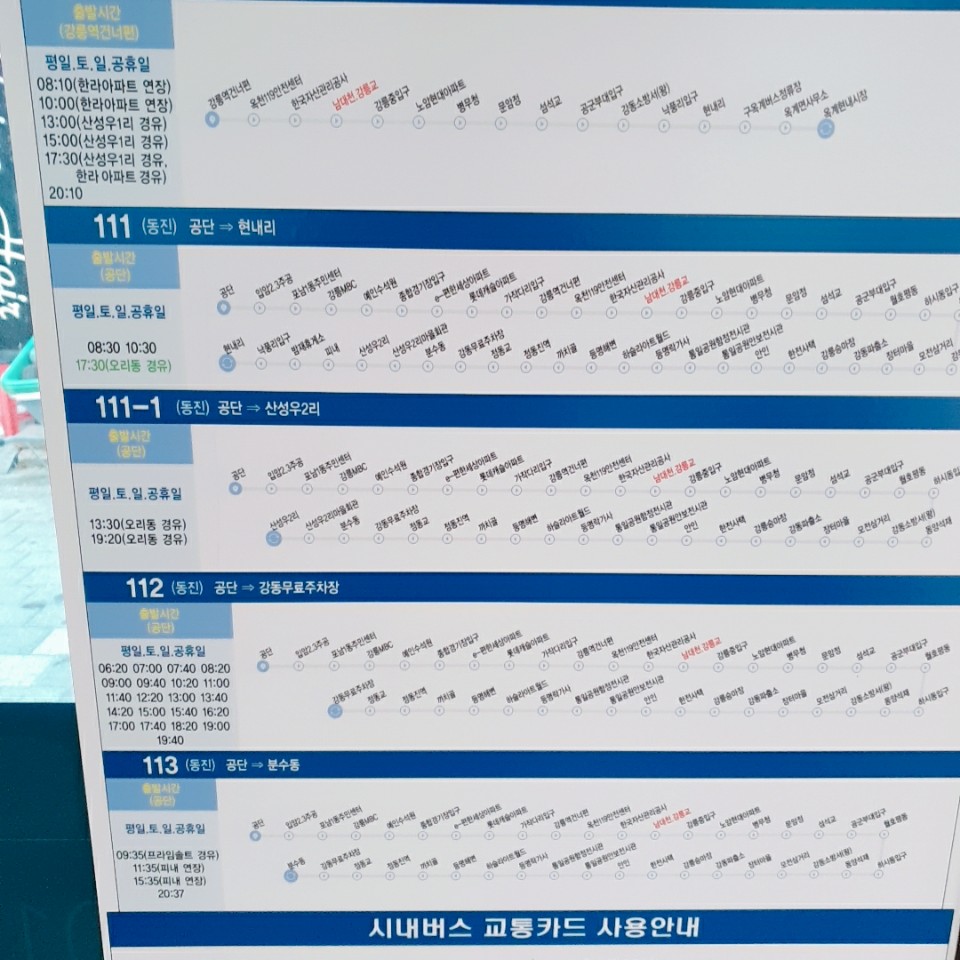 출발시간
(강릉역건너편)
평일.토.일.공휴일
08:10(한라아파트 연장)
10:00(한라아파트 연장)
13:00(산성우1리 경유)
15:00(산성우1리 경유)
17:30(산성우1리 경유,
한라 아파트 경유)
20:10
강릉역건너편 옥천119안전센터 한국자산관리공사 남대천.강릉교 강릉중입구 노암현대아파트 병무청 문암정 섬석교 공군부대입구 강동소방서(왕) 낙풍리입구 현내리 구옥계버스정류장 옥계면사무소 옥계현내시장
111 (동진) 공단 ⇒ 현내리
출발시간
(공단)
평일.토.일.공휴일
08:30 10:30
17:30(오리동 경유)
공단 입암2.3주공 포남1동주민센터 강릉MBC 예인수석원 종합경기장입구 e-편한세상아파트 롯데캐슬아파트 가작다리입구 강릉역건너편 옥천119안전센터 한국자산관리공사 남대천.강릉교 강릉중입구 노암현대아파트 병무청 문암정 섬석교 공군부대입구 월호평동 하시동입구
현내리 낙풍리입구 밤재휴게소 피내 산성우2리 산성우2리마을회관 분수동 강동무료주차장 정동교 정동진역 까치골 등명해변 하슬라아트월드 등명락가사 통일공원함정전시관 통일공원안보전시관 안인 한전사택 강릉승마장 강동파출소 장터마을 모전삼거리
111-1 (동진) 공단 ⇒ 산성우2리
출발시간
(공단)
평일.토.일.공휴일
13:30(오리동 경유)
19:20(오리동 경유)
공단 입암2.3주공 포남1동주민센터 강릉MBC 예인수석원 종합경기장입구 e-편한세상아파트 롯데캐슬아파트 가작다리입구 강릉역건너편 옥천119안전센터 한국자산관리공사 남대천.강릉교 강릉중입구 노암현대아파트 병무청 문암정 섬석교 공군부대입구 월호평동 하시동입
산성우2리 산성우2리마을회관 분수동 강동무료주차장 정동교 정동진역 까치골 등명해변 하슬라아트월드 등명락가사 통일공원함정전시관 통일공원안보전시관 안인 한전사택 강릉승마장 강동파출소 장터마을 모전삼거리 강동소방서(왕) 동양석재
112 (동진) 공단 ⇒ 강동무료주차장
출발시간
(공단)
평일.토.일.공휴일
06:20 07:00 07:40 08:20
09:00 09:40 10:20 11:00
11:40 12:20 13:00 13:40
14:20 15:00 15:40 16:20
17:00 17:40 18:20 19:00
19:40
공단 입암2.3주공 포남1동주민센터 강릉MBC 예인수석원 종합경기장입구 e-편한세상아파트 롯데캐슬아파트 가작다리입구 강릉역건너편 옥천119안전센터 한국자산관리공사 남대천.강릉교 강릉중입구 노암현대아파트 병무청 문암정 섬석교 공군부대입구 월호평동
강동무료주차장 정동교 정동진역 까치골 등명해변 하슬라아트월드 등명락가사 통일공원함정전시관 통일공원안보전시관 안인 한전사택 강릉승마장 강동파출소 장터마을 모전삼거리 강동소방서(왕) 동양석재 하시동입구
113 (동진) 공단 ⇒ 분수동
출발시간
(공단)
평일.토.일.공휴일
09:35(프라임솔트 경유)
11:35(피내 연장)
15:35(피내 연장)
20:37
공단 입암2.3주공 포남1동주민센터 강릉MBC 예인수석원 종합경기장입구 e-편한세상아파트 롯데캐슬아파트 가작다리입구 강릉역건너편 옥천119안전센터 한국자산관리공사 남대천.강릉교 강릉중입구 노암현대아파트 병무청 문암정 섬석교 공군부대입구 월호평동
분수동 강동무료주차장 정동교 정동진역 까치골 등명해변 하슬라아트월드 등명락가사 통일공원함정전시관 통일공원안보전시관 안인 한전사택 강릉승마장 강동파출소 장터마을 모전삼거리 강동소방서(왕) 동양석재 하시동입구
시내버스 교통카드 사용안내